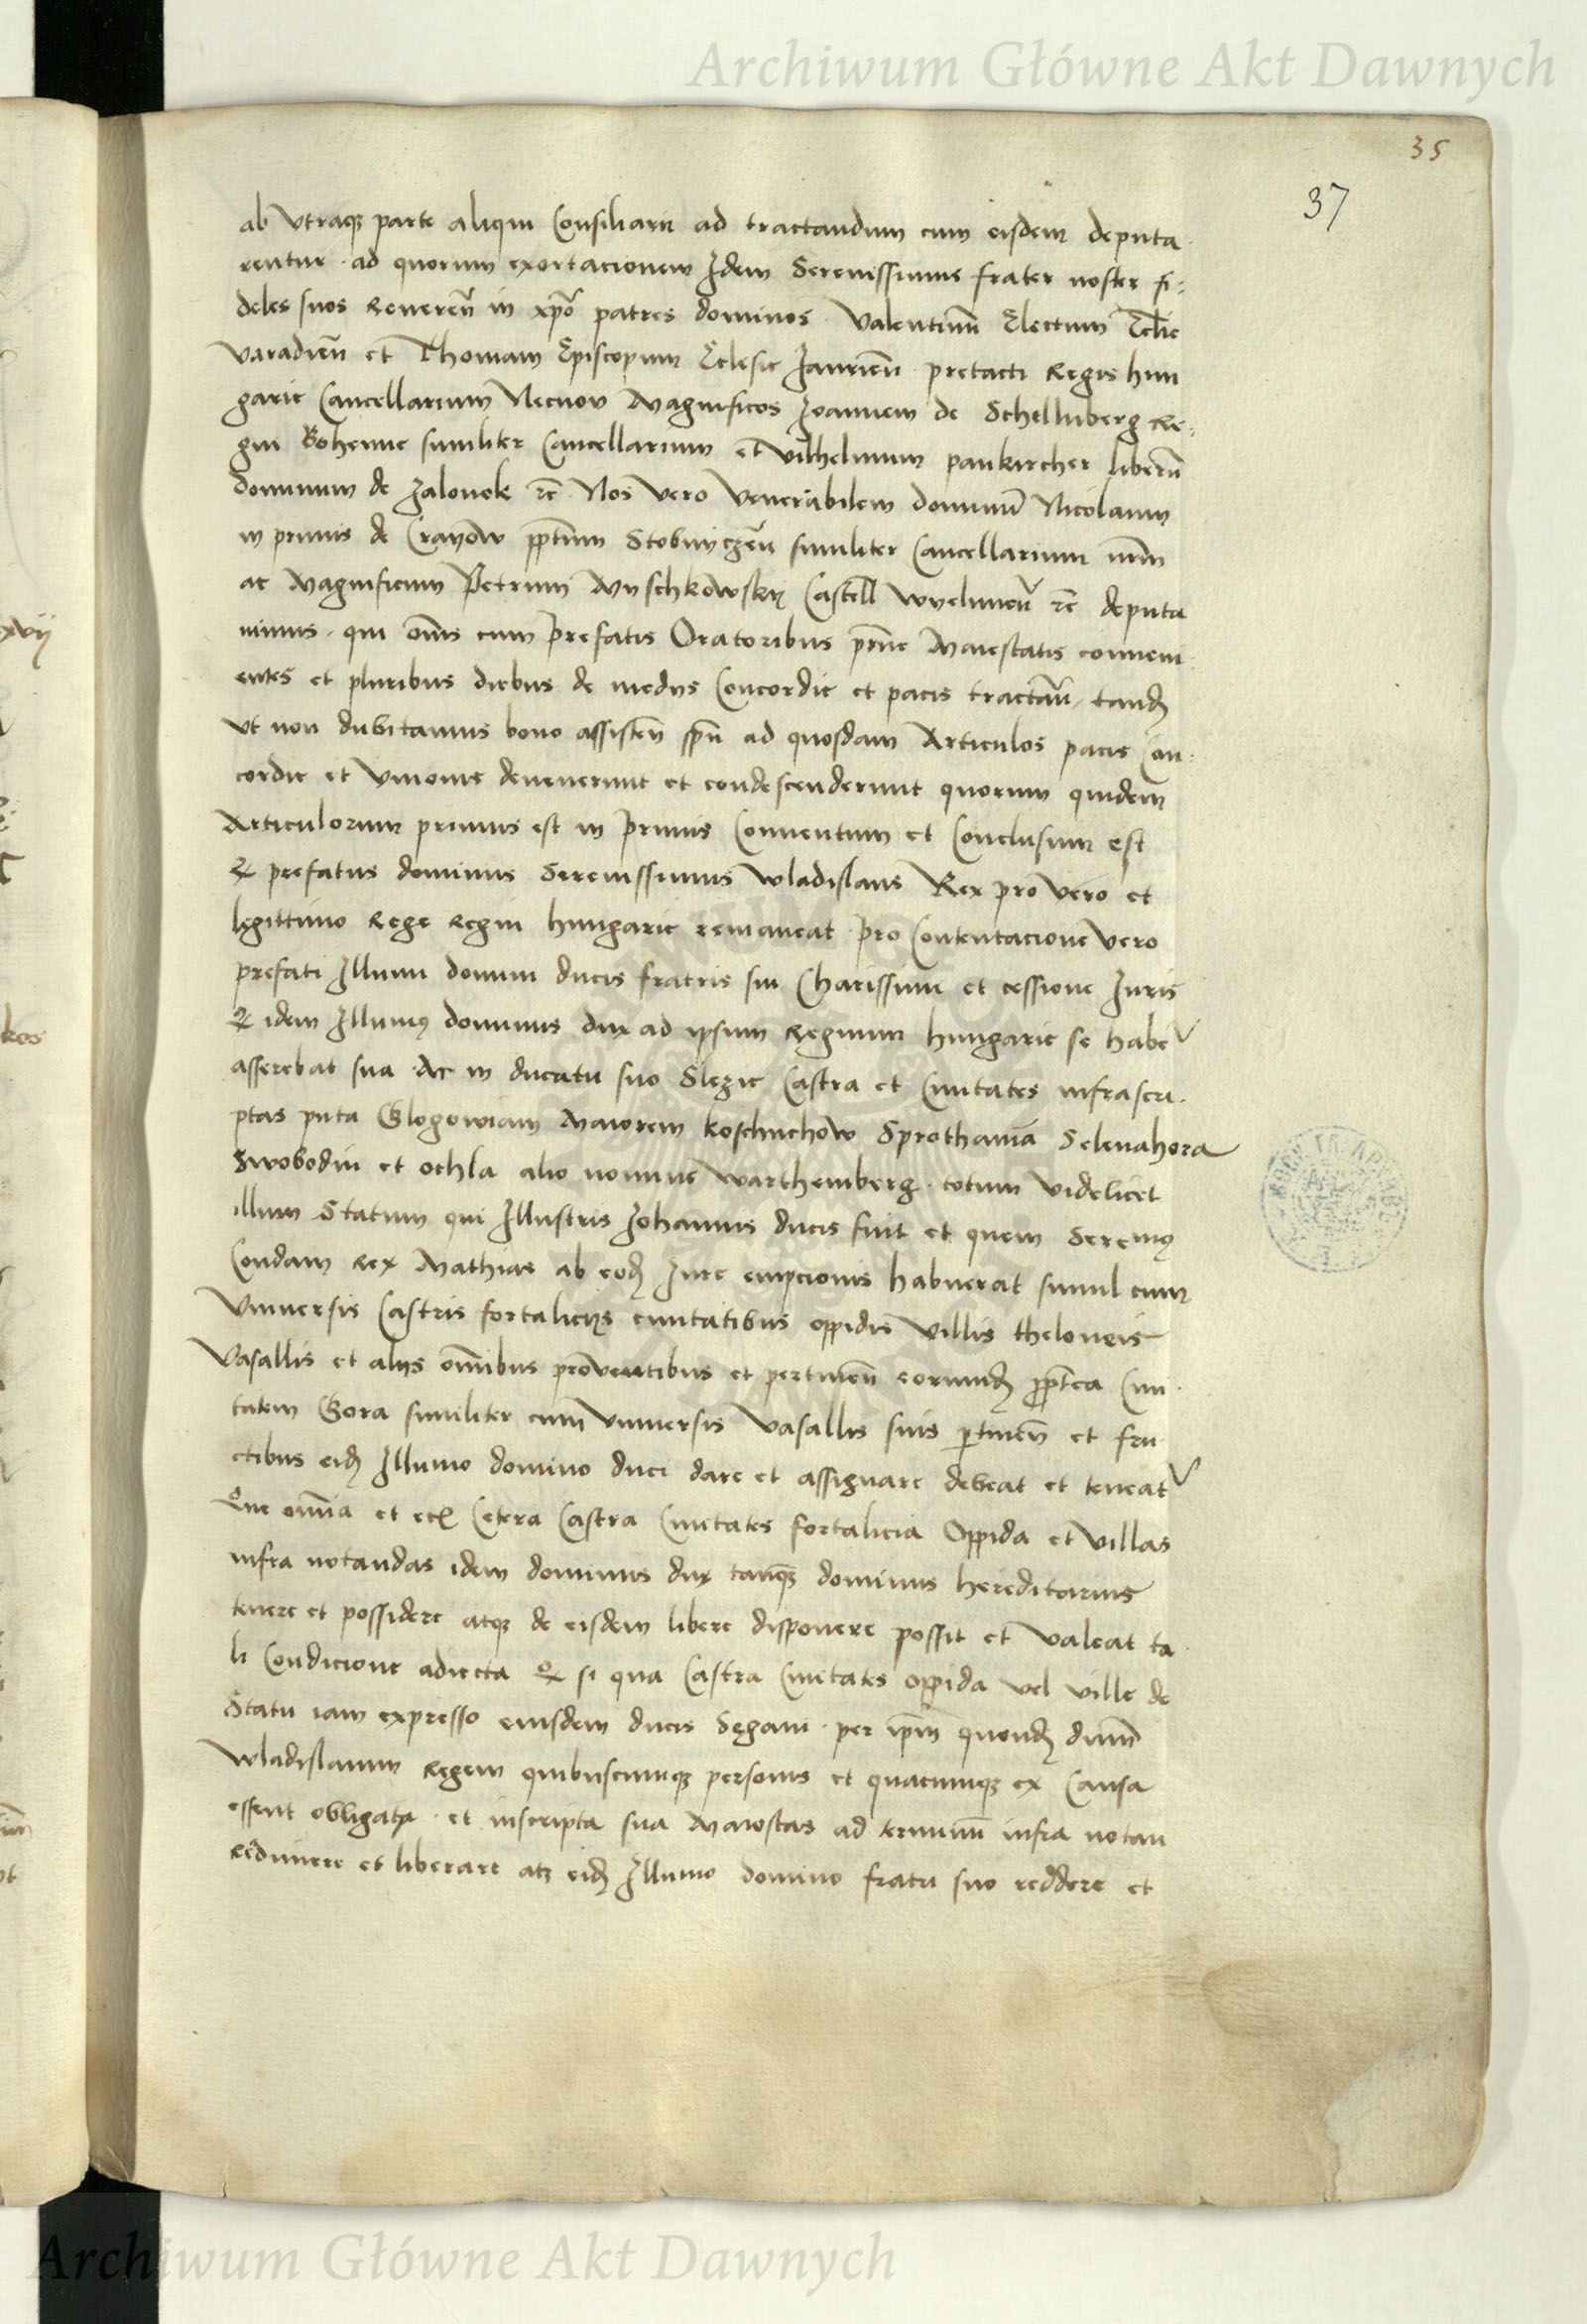 Archiwum Główne Akt Dawnych
35
37
ab vtraq3 parte aliqui Consiliarii ad tractandum cum eisdem deputa
rentur · ad quorum exortacionem Idem Serenissimus frater noster fi:
deles suos Reueren̄ in xp̄o patres dominos · Valentinū Electum Eccl̄ie
Varadien̄ et Thomam Episcopum Eclesie Jaurien̄ pretacti Regis hun
garie Cancellarium Necnon Magnificos Joannem de Schellnberg Re:
gni Bohemie similiter Cancellarium et Vilhelmum pankircher liberū
dominum de Zalonok rc̄ Nos vero Venerabilem dominū Nicolaum
in primis de Crayow pp̄tum Stobnyczen̄ similiter Cancellarium nr̄m
ac Magnificum Petrum Myschkowsky Castell Wyelunen̄ rc̄ deputa
uimus · qui om̄s cum prefatis Oratoribus pr̄ne Maiestatis conueni
entes et pluribus diebus de medys Concordie et pacis tractan̄ tand3
vt non dubitamus bono assisten̄ sp̄u ad quosdam Articulos pacis Con
cordie et Vnionis deuenerunt et condescenderunt quorum quidem
Articulorum primus est in primis Conuentum et Conclusum est
ꝙ prefatus dominus Serenissimus Wladislaus Rex pro vero et
legittimo Rege Regni hungarie remaneat pro Contentacione vero
prefati Illumi domini ducis fratris sui Charissimi et cessione Juris
ꝙ idem Illumꝰ dominus dux ad ipsum Regnum hungarie se habe
asserebat sua Ac in ducatu suo Slezie Castra et Ciuitates infrascri
ptas puta Glogowiam Maiorem Koschuchow Sprothauia Selenahora
Swobodin et ochla alio nomine Warthemberg · totum videlicet
illum Statum qui Illustris Johannis ducis fuit et quem Seremꝰ
Condam Rex Mathias ab eod3 Jure empcionis habuerat simul cum
Vniuersis Castris fortalicys ciuitatibus oppidis Villis theloneis
Vasallis et alys om̄ibus prouentibus et pertinen̄ eorumd3 pp̄terea Ciui
tatem Gora similiter cum Vniuersis Vasallis suis ptinen̄ et fru
ctibus eid3 Illumo domino duci dare et assignare debeat et teneat
Que omnia et Cetera Castra Ciuitates fortalicia Oppida et Villas
infra notandas idem dominus dux tanq3 dominus hereditarius
tenere et possidere atq3 de eisdem libere disponere possit et Valeat ta
li Condicione adiecta ꝙ si qua Castra Ciuitates oppida vel ville de
Statu iam expresso eiusdem ducis Segani · per ip̄m quond3 dn̄m
Wladislaum Regem quibuscumq3 personis et quacumq3 ex Causa
essent obligata · et inscripta sua Maiestas ad terminū infra notan
redimere et liberare atq3 eid3 Illumo domino fratri suo reddere et
Archiwum Główne Akt Dawnych